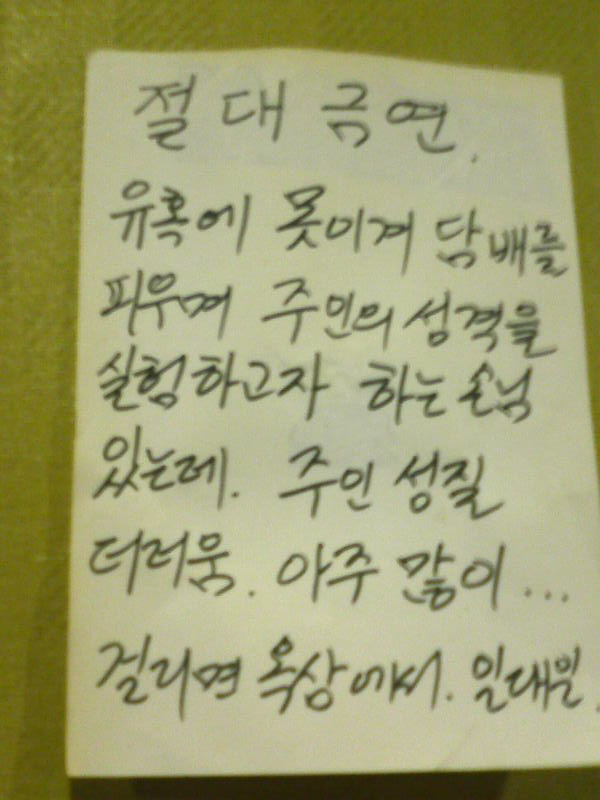 절대금연.
유혹에 못이겨 담배를
피우며 주인의 성격을
실험하고자 하는 손님
있는데. 주인 성질
더러움. 아주 많이...
걸리면 옥상에서. 일대일.